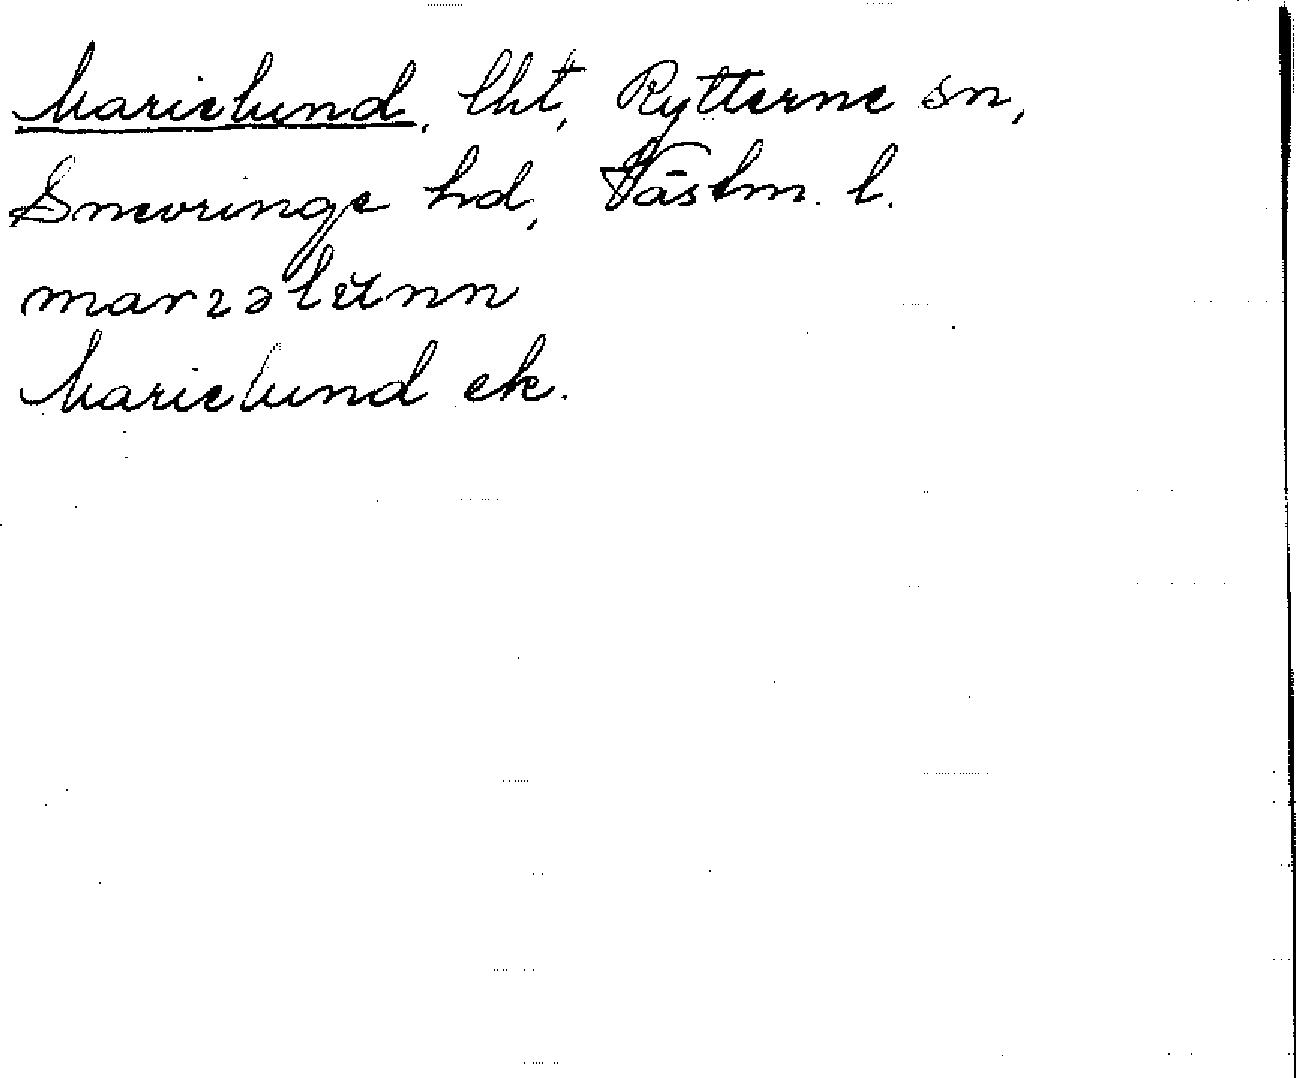 Marielund, lht, Rytterne sn,
Snevringe hd, Västm. l.
Marielund ek.